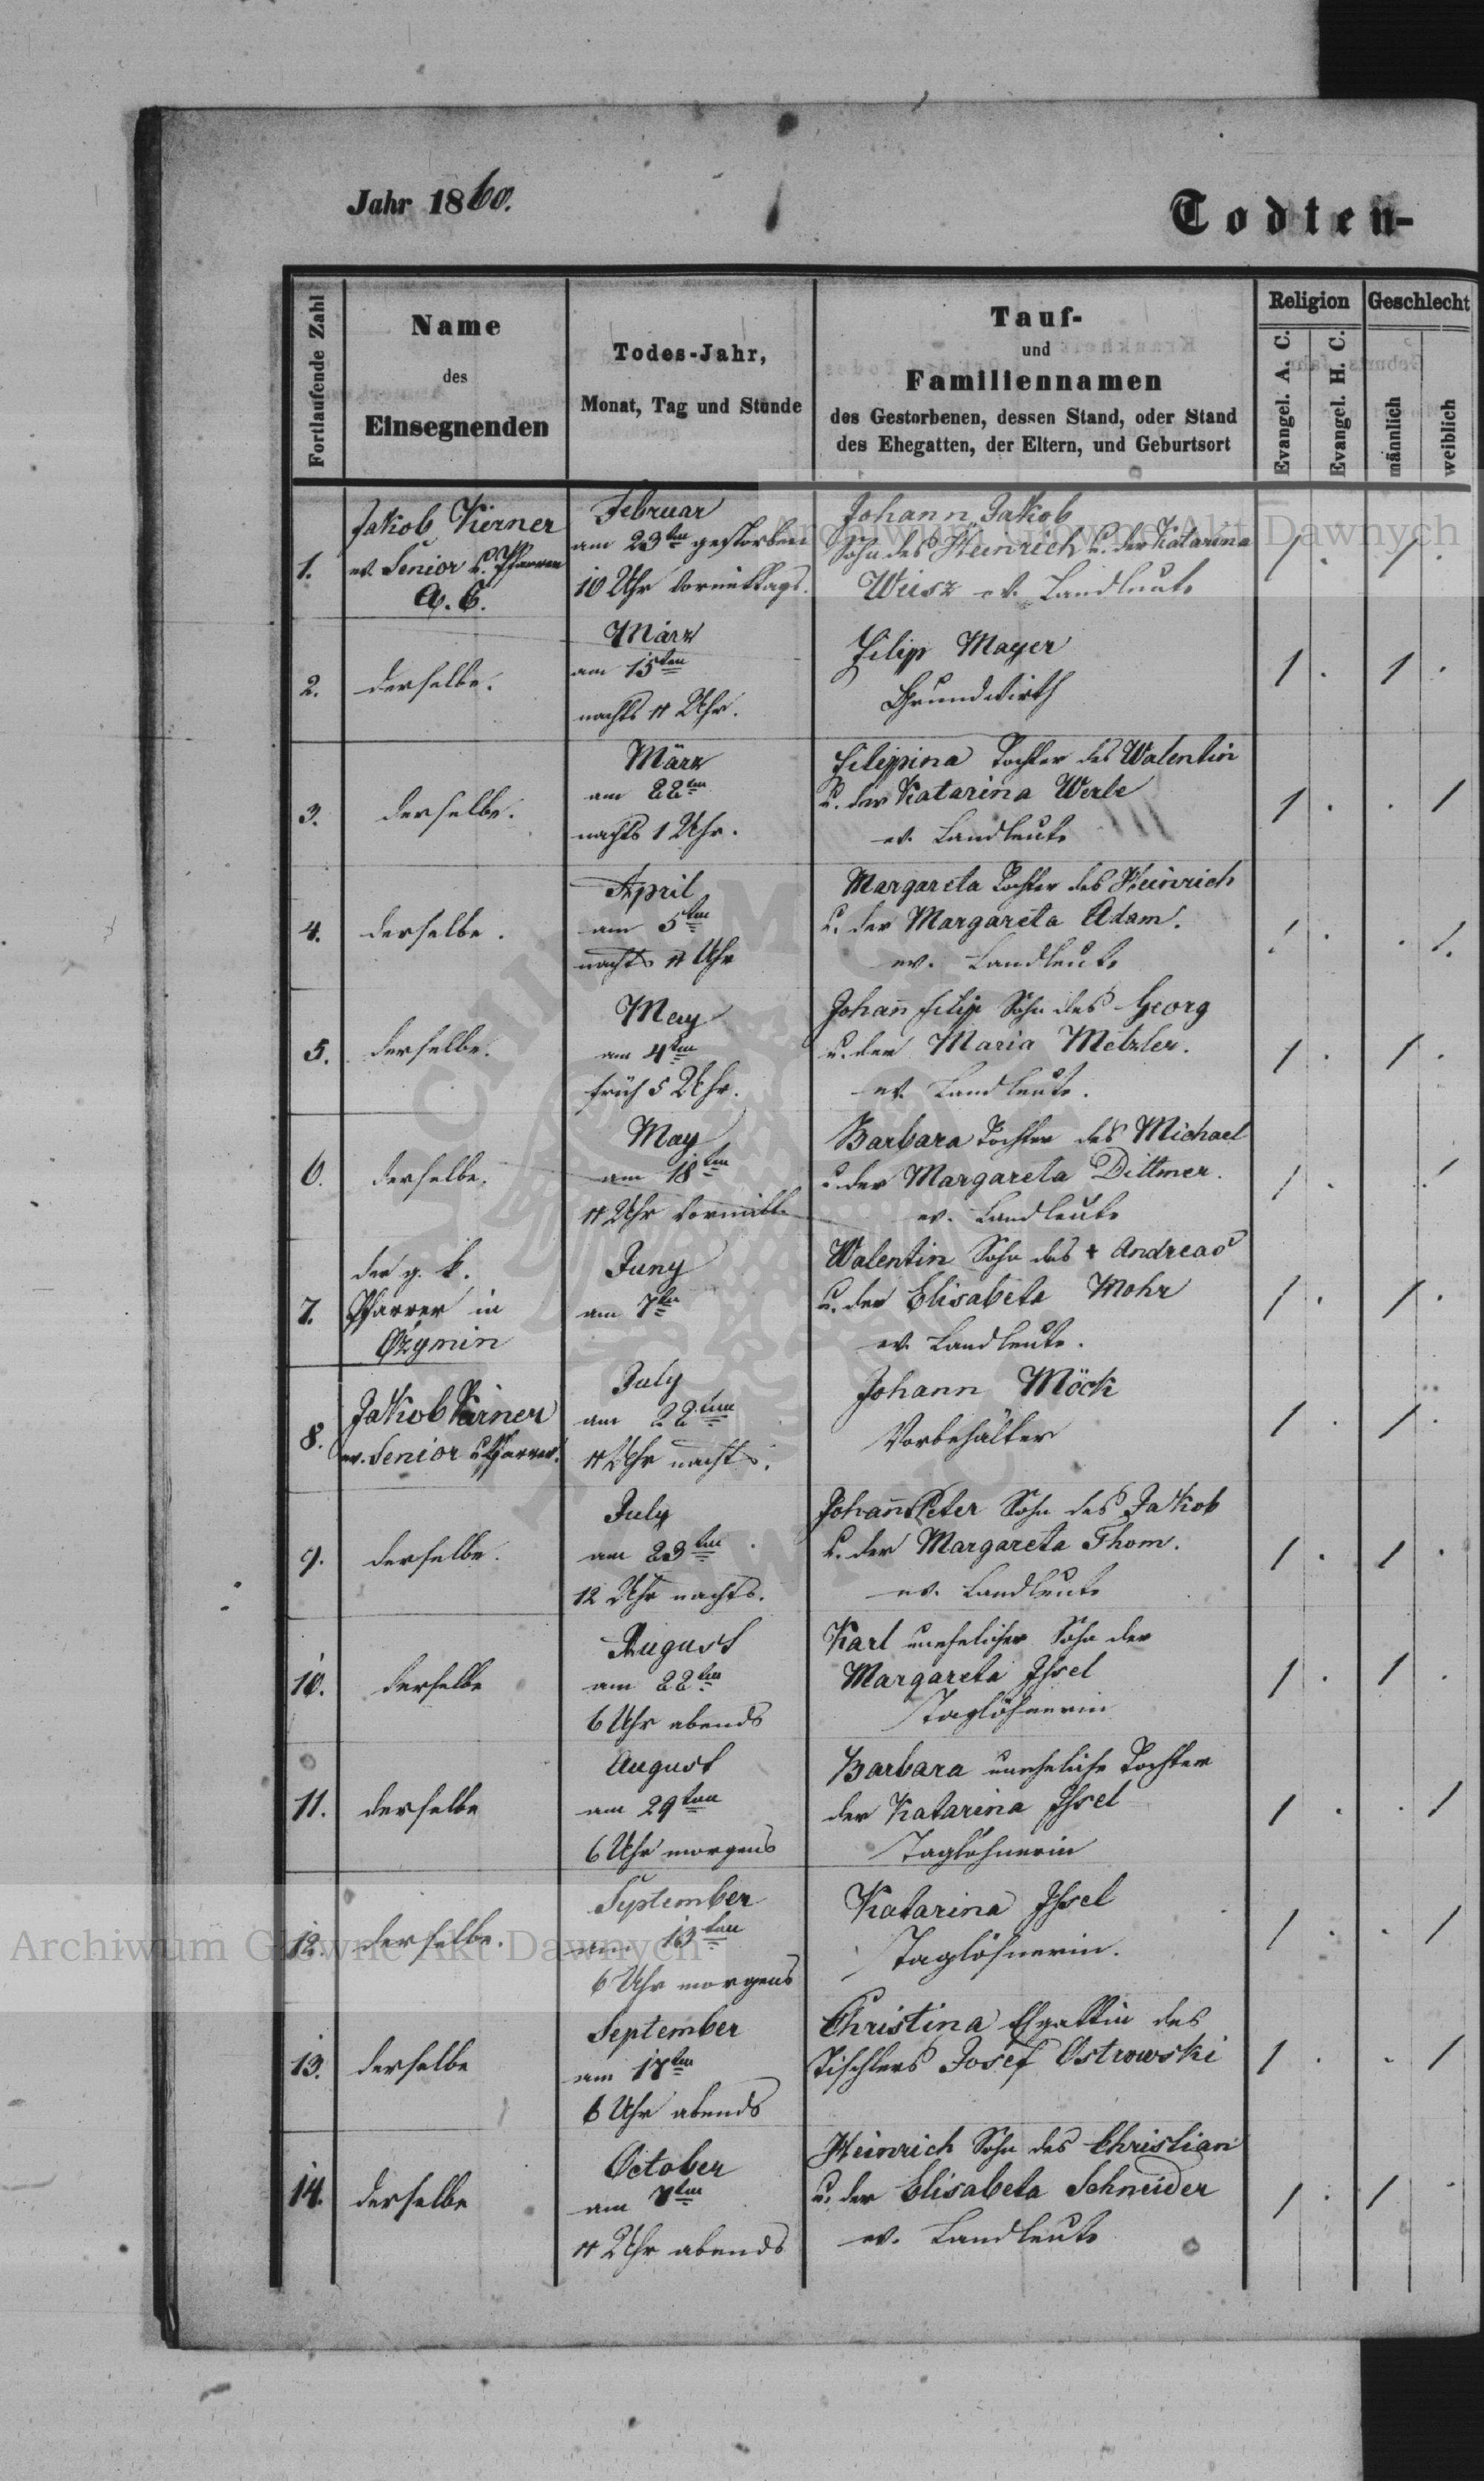 Jahr 1860.
Todten-
Fortlaufende Zahl
Name
des
Einsegnenden
Todes-Jahr,
Monat, Tag und Stunde
Tauf-
und
Familiennamen
des Gestorbenen, dessen Stand, oder Stand
des Ehegatten, der Eltern, und Geburtsort
Religion
Evangel. A. C.
Evangel. H. C.
Geschlecht
männlich
weiblich
1.
Jakob Kerner
ev. Senior u. Pfarrer
A. C.
Februar
am 23ten gestorben
10 Uhr vormittags.
Johann Jakob
Sohn des Heinrich u. der Katarina
Weisz ev. Landleute
1 . 1 .
2.
derselbe.
März
am 15ten
nachts 11 Uhr.
Filip Mayer
Grundwirth
1 . 1 .
3.
derselbe.
März
am 22ten
nachts 1 Uhr.
Filippina Tochter des Walentin
u. der Katarina Werle
ev. Landleute
1 . . 1
4.
derselbe.
April
am 5ten
nachts 11 Uhr
Margareta Tochter des Heinrich
u. der Margareta Adam.
ev. Landleute
1 . . 1.
5.
derselbe.
May
am 4ten
früh 5 Uhr.
Johann Filip Sohn des Georg
u. der Maria Metzler.
ev. Landleute.
1 . 1 .
6.
derselbe.
May
am 18ten
11 Uhr vormitt.
Barbara Tochter des Michael
u. der Margareta Dittmer.
ev. Landleute
1 . . 1
7.
der g. k.
Pfarrer in
Ozymin
Juny
am 7ten
Walentin Sohn des + Andreas
u. der Elisabeta Mohr
ev. Landleute.
1 . 1 .
8.
Jakob Kerner
ev. Senior u. Pfarrer.
July
am 22ten
11 Uhr nachts.
Johann Möck
Vorbehälter
1 . 1 .
9.
derselbe.
July
am 23ten
12 Uhr nachts.
Johann Peter Sohn des Jakob
u. der Margareta Thom.
ev. Landleute
1 . 1 .
10.
derselbe
August
am 22ten
6 Uhr abends
Karl unehelicher Sohn der
Margareta Issel
Taglöhnerin
1 . 1 .
11.
derselbe
August
am 29ten
6 Uhr morgens
Barbara uneheliche Tochter
der Katarina Issel
Taglöhnerin
1 . . 1
12.
derselbe.
September
am 13ten
6 Uhr morgens
Katarina Issel
Taglöhnerin.
1 . . 1
13.
derselbe
September
am 17ten
6 Uhr abends
Christina Ehgattin des
Tischlers Josef Ostrowski
1 . . 1
14.
derselbe
October
am
11 Uhr abends
Heinrich Sohn des Christian
u. der Elisabeta Schneider
ev. Landleute
1 . 1 .
Archiwum Główne Akt Dawnych
Archiwum Główne Akt Dawnych